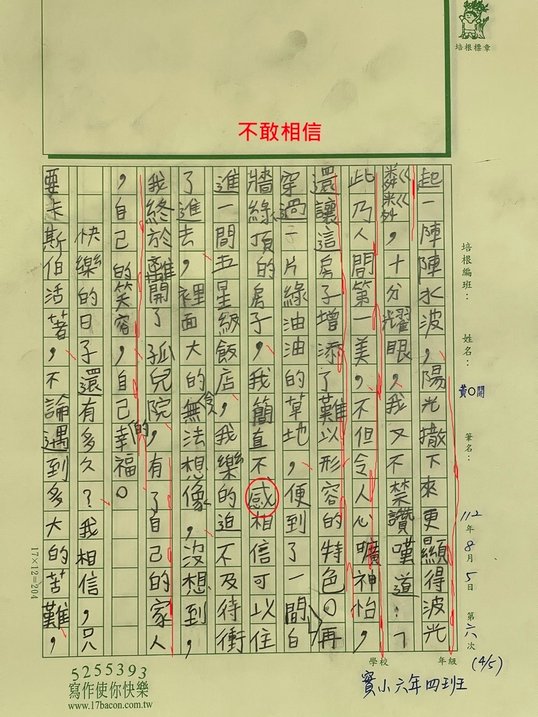 不敢相信
培根標章
培根編班：
姓名：
黃O開
筆名：
112年8月5日 第六次
(4/5)
學校　年級
寶小六年四班
起一陣陣水波，陽光撒下來更顯得波光
粼粼，十分耀眼，我又不禁讚嘆道：「
此乃人間第一美，不但令人心曠神怡，
還讓這房子增添了難以形容的特色。再
穿過一片綠油油的草地，便到了一間白
牆綠頂的房子，我簡直不感相信可以住
進一間五星級飯店，我樂的迫不及待衝
了進去，裡面大的令無法想像，沒想到，
我終於離開了孤兒院，有了自己的家人
，自己的笑容，自己的幸福。
快樂的日子還有多久？我相信，只
要卡斯伯活著，不論遇到多大的苦難，
17×12=204
5255393
寫作使你快樂
www.17bacon.com.tw